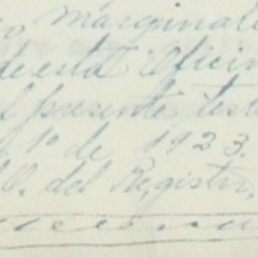 marginale
de esta Oficin
l presente test
1º de 1923.
O. del Registro